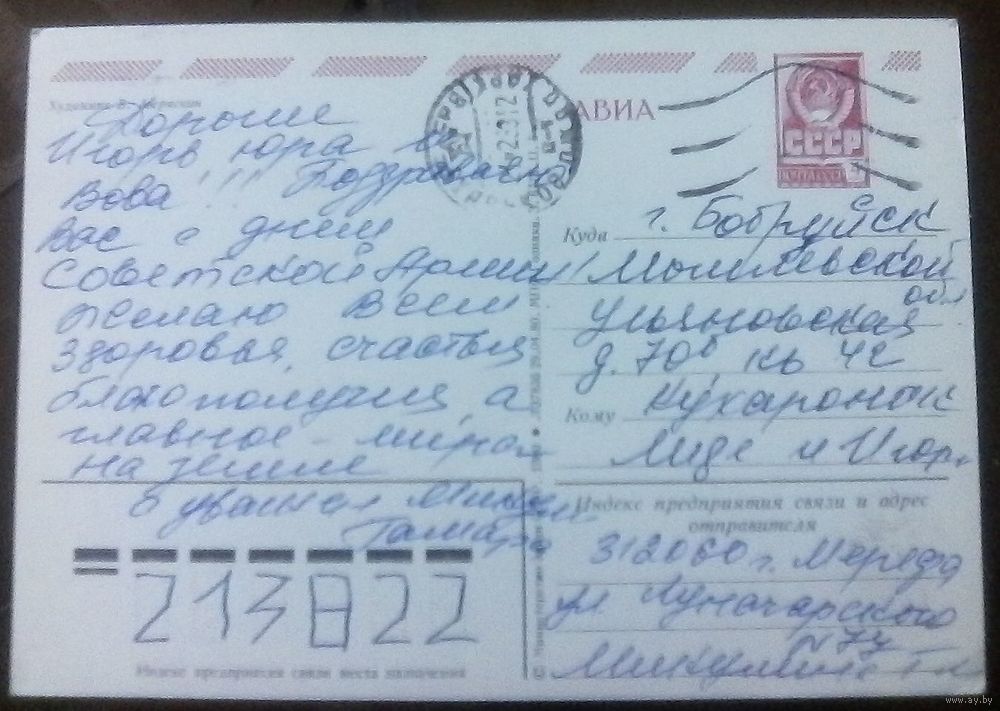 Художник
АВИА
СССР
Дорогие
Игорь Юра и
Вова!!! Поздравляю
Вас с днем
Советской Армии!
Желаю Всем
здоровья, счастья
благополучия, а
главное - мира
на земле
С уважен
Тамара
Куда г. Бобруйск
Могилевской обл
Ульяновская
д. 70б кв 42
Кому
Лиде и Игор.
Индекс предприятия связи и адрес
отправителя
312060 г. Мерефа
ул Луначарского
N 77
213822
Индекс предприятия связи места назначения
www.ay.by